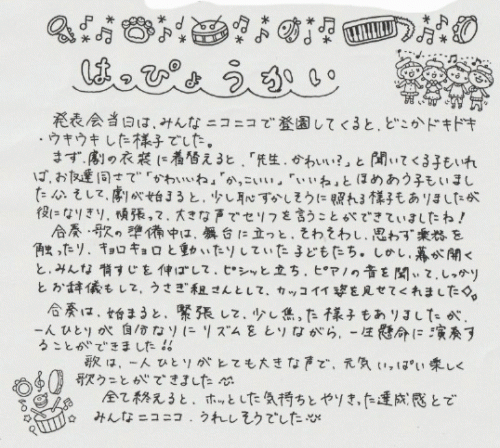 はっぴょうかい
発表会当日は、みんなニコニコで登園してくると、どこかドキドキ
・ウキウキした様子でした。
まず、劇の衣装に着替えると、「先生、かわいい?」と聞いてくる子もいれ
ば、お友達同士で「かわいいね」「かっこいい」「いいね」とほめあう子もいまし
た。そして、劇が始まると、少し恥ずかしそうに照れる様子もありましたが
役になりきり、頑張って、大きな声でセリフを言うことができていましたね!
合奏・歌の準備中は、舞台に立つと、そわそわし、思わず楽器を
触ったり、キョロキョロと動いたりしていた子どもたち。しかし、幕が開く
と、みんな背すじを伸ばして、ピシッと立ち、ピアノの音を聞いて、しっかり
とお辞儀もして、うさぎ組さんとして、カッコイイ姿を見せてくれました。
合奏は、始まると、緊張して、少し焦った様子もありましたが、
一人ひとりが自分なりにリズムをとりながら、一生懸命に演奏す
ることができました!!
歌は、一人ひとりがとても大きな声で、元気いっぱい楽しく
歌うことができました
全て終えると、ホッとした気持ちとやりきった達成感とで
みんなニコニコ、うれしそうでした